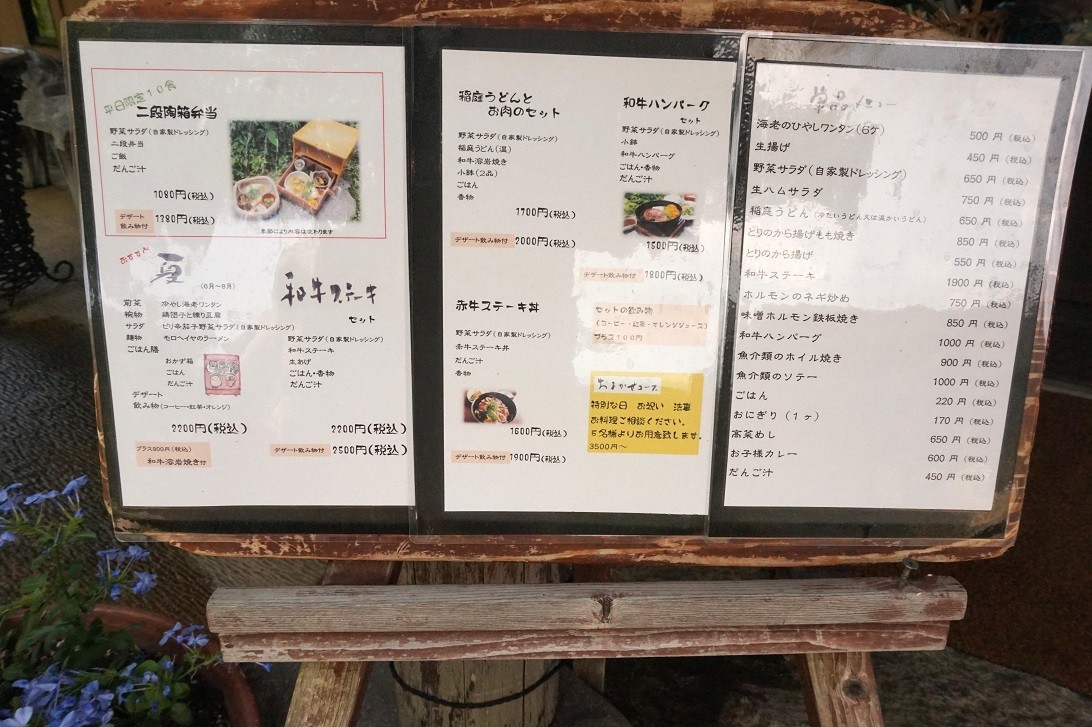 平日限定10食
二段陶箱弁当
野菜サラダ(自家製ドレッシング)
二段弁当
ご飯
だんご汁
1080円(税込)
デザート
飲み物付
1380円(税込)
季節により内容は変わります
夏
(6月~8月)
前菜 冷やし海老ワンタン
椀物 鶏団子と練り豆腐
サラダ ピリ辛茄子野菜サラダ(自家製ドレッシング)
麺物 モロヘイヤのラーメン
ごはん膳
おかず箱
ごはん
だんご汁
デザート
飲み物(コーヒー・紅茶・オレンジ)
2200円(税込)
プラス900円(税込)
和牛溶岩焼き付
和牛ステーキ
セット
野菜サラダ(自家製ドレッシング)
和牛ステーキ
生あげ
ごはん・香物
だんご汁
2200円(税込)
デザート飲み物付 2500円(税込)
稲庭うどんと
お肉のセット
野菜サラダ(自家製ドレッシング)
稲庭うどん(温)
和牛溶岩焼き
小鉢(2品)
ごはん
香物
1700円(税込)
デザート飲み物付 2000円(税込)
和牛ハンバーグ
セット
野菜サラダ(自家製ドレッシング)
小鉢
和牛ハンバーグ
ごはん・香物
だんご汁
1500円(税込)
デザート飲み物付 1800円(税込)
赤牛ステーキ丼
野菜サラダ(自家製ドレッシング)
赤牛ステーキ丼
だんご汁
香物
1600円(税込)
デザート飲み物付 1900円(税込)
セットの飲み物
(コーヒー・紅茶・オレンジジュース)
プラス100円
おまかせコース
特別な日 お祝い 法事
お料理ご相談ください。
5名様よりお用意致します。
3500円~
単品メニュー
海老のひやしワンタン(6ケ) 500円(税込)
生揚げ 450円(税込)
野菜サラダ(自家製ドレッシング) 650円(税込)
生ハムサラダ 750円(税込)
稲庭うどん(冷たいうどん又は温かいうどん) 650円(税込)
とりのから揚げもも焼き 850円(税込)
とりのから揚げ 550円(税込)
和牛ステーキ 1900円(税込)
ホルモンのネギ炒め 750円(税込)
味噌ホルモン鉄板焼き 850円(税込)
和牛ハンバーグ 1000円(税込)
魚介類のホイル焼き 900円(税込)
魚介類のソテー 1000円(税込)
ごはん 220円(税込)
おにぎり(1ヶ) 170円(税込)
高菜めし 650円(税込)
お子様カレー 600円(税込)
だんご汁 450円(税込)